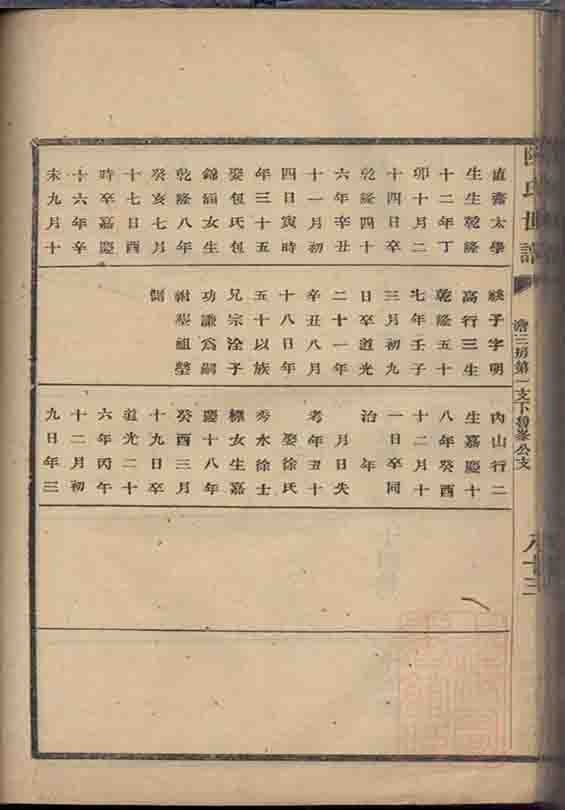 氏世譜
三房第一支下峯公支
八十三
直齋太學
生生乾隆
十二年丁
卯十月二
十四日卒
乾隆四十
六年辛丑
十一月初
四日寅時
年三十五
娶包氏包
錦涵女生
乾隆八年
癸亥七月
十七日酉
時卒嘉慶
十六年辛
未九月十
子字明
高行三生
乾隆五十
七年壬子
三月初九
日卒道光
二十一年
辛丑八月
十八日年
五十以族
兄宗淦子
功謙爲嗣
祔葬祖塋
側
內山行二
生嘉慶十
八年癸酉
十二月十
一日卒同
治　年
月日失
考年五十
娶徐氏
秀水徐士
標女生嘉
慶十八年
癸酉三月
十九日卒
道光二十
六年丙午
十二月初
九日年三